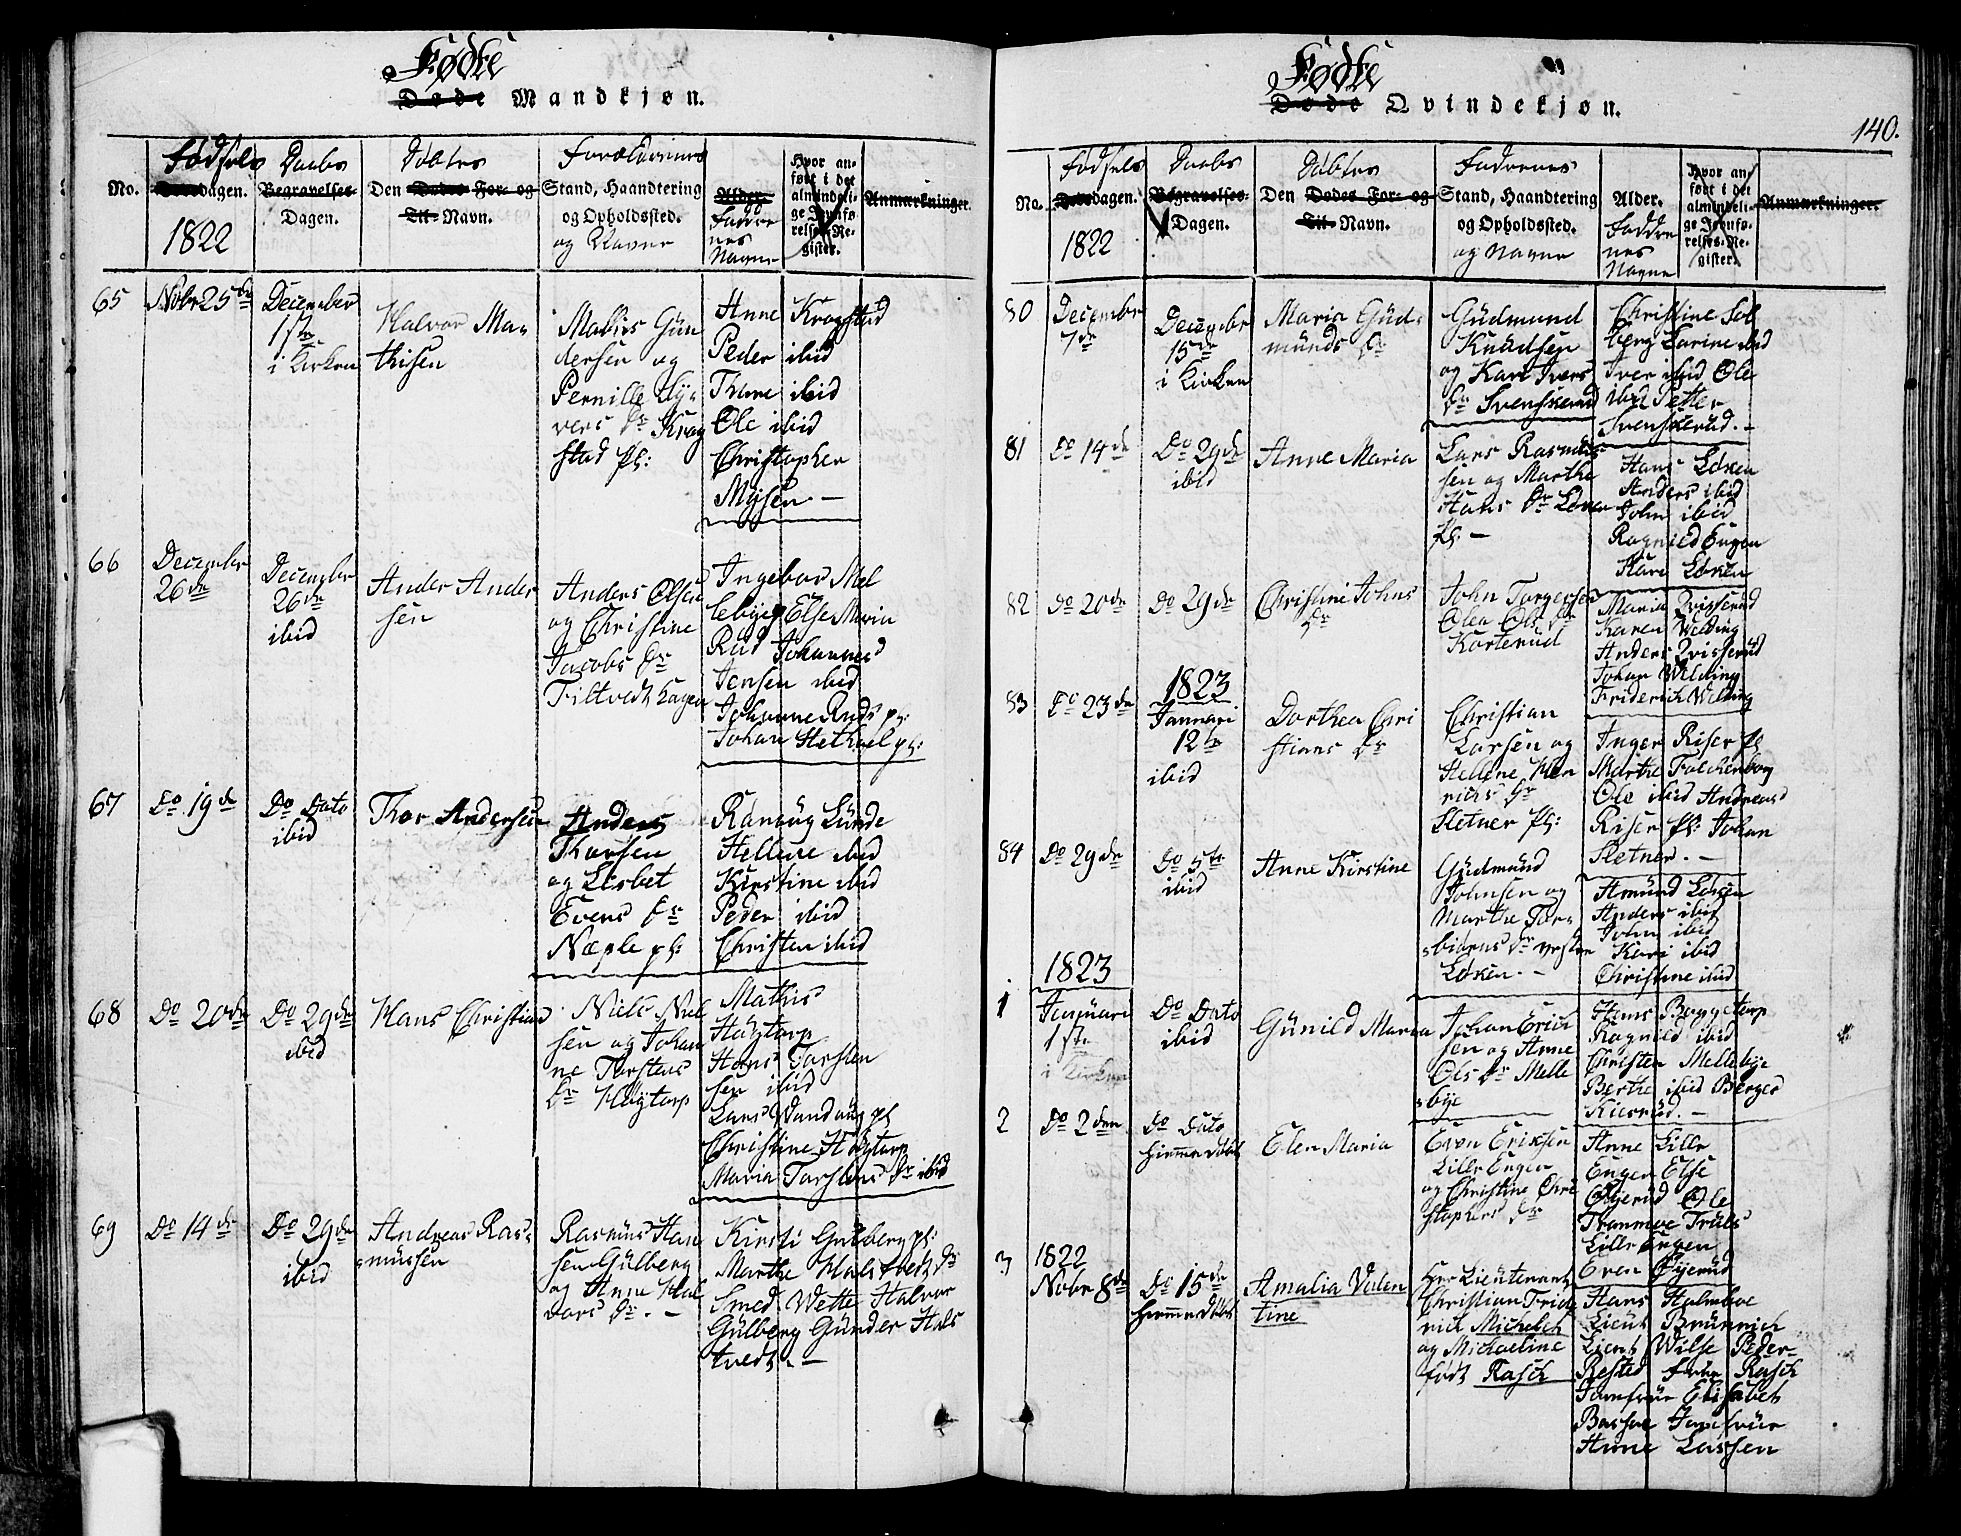 Fødte
Døde Mandkjøn.
No.
Fødsels
Dødsdagen.
1822
Daabs
Begravelses-
Dagen.
Døbtes
Den Dødes For- og
Til-Navn.
Forældrenes
Stand, Haandtering
og Opholdssted.
og Navne
Alder.
Faddre
nes
Navne
Hvor an-
ført i det
almindeli-
ge Jevnfø-
relses-Re-
gister.
Anmærkninger.
65
Nobr 25de
December
1ste
i Kirken
Halvor Ma-
thisen
Mathis Gun
dersen og
Pernille Sy-
vers Dr Krog
stad pl:
Anne Krogstad
Peder ibid
Thore ibid
Ole ibid
Christopher
Mysen.—
66
December
26de
December
26de
ibid
Ander Ander
sen
Anders Olsen
og Christine
Jacobs Dr
Filtvedt hagen
Ingebor Mel
lebye Else Maria
Rud Johannes
Jensen ibid
Johanne Ruds pl:
Johan pl:
67
Do 19de
Do Dato
ibid
Thor Andersen
Anders
Thorsen
og Lisbet
Evens Dr
Næple pl:
Ranoug Lunde
Hellene ibid
Kirstine ibid
Peder ibid
Christen ibid
68
Do 20de
Do 29de
ibid
Hans Christian
Niels Niel
sen og Johan
ne Torstens
Dr Høytorp
Mathis
Høytorp
Hans Torsten
sen ibid
Lars pl
Christine Høytorp
Maria Torstens Dr ibid
69
Do 14de
Do 29de
ibid
Andreas Ras-
mussen
Rasmus Han
sen Gulberg
og Anne Hal
vors Dr.—
Kirsti Gulberg pl:
Marthe Halstvedt Dr
Smed Wette Halvor
Gulberg Gunder Hals
tvedt.—
Fødte
Døde Qvindekjøn.
140.
No.
Fødsels
Dødsdagen.
1822
Daabs
Begravelses-
Dagen.
Døbtes
Den Dødes For- og
Til-Navn.
Fadrenes
Stand, Haandtering
og Opholdssted.
og Navne
Alder.
Faddre
nes
Navne
Hvor an-
ført i det
almindeli-
ge Jevnfø-
relses-Re-
gister.
Anmærkninger.
80
December
7de
December
15de
i Kirken
Maria Gud-
munds Dr
Gudmund
Knudsen
og Kari Ivers
Dr Svenskerud
Christine Sol
berg Karine ibid
Iver ibid Ole
ibid Petter
Svenskerud.—
81
Do 14de
Do 29de
ibid
Anne Maria
Lars Rasmus
sen og Marthe
Hans Dr Løken
pl.—
Hans Løken
Anders ibid
John ibid
Ragnild Engen
Kari Løken
82
Do 20de
Do 29de
Christine Johns
Dr
John Torgersen
Olea Ols Dr
Korterud
Maria Qvisserud
Karen Welding
Anders Qvisserud
Johan Welding
Friderich Welding
83
Do 23de
1823
Januari
12te
ibid
Dorthea Chri
stians Dr
Christian
Larsen og
Hellene Hen
richs Dr
Sletner pl:
Inger Riser pl
Marthe Falchenborg
Ole ibid Andreas
Riser pl: Johan
Sletner.—
84
Do 29de
Do 5te
ibid
Anne Kirstine
Gudmund
Johnsen og
Marthe Tor-
biørns Dr vestre
Løken.—
Amund Løken
Anders ibid
John ibid
Kari ibid
Christine ibid
1823
1
Januari
1ste
i Kirken
Do Dato
ibid
Gunild Maria
Johan Erich
sen og Anne
Ols Dr Melle
bye
Hans Baggetorp
Ragnild ibid
Christen Mellebye
Berthe ibid Berger
Kierrud.—
2
Do 2den
Do Dato
hiemmedøbt
Elen Maria
Even Eriksen
Lille Engen
og Christine Chri
stophers Dr
Anne Lille
Engen Else
Øyerud Ole
Tranmoe Truls
Lille Engen
Even Øyerud
3
1822
Nobr 8de
Do 15de
hiemmedøbt
Amalia Valen
tine
Hr Lieutenant
Christian Frid
rich Michelet
og Michaeline
født Rasch
Hans Holmboe
Lieut Brünnich
Lieut Wilse Peder-
Rested Frue Rasch
Jomfrue Elisabet
Bassøe Jomfrue
Anne Lassen